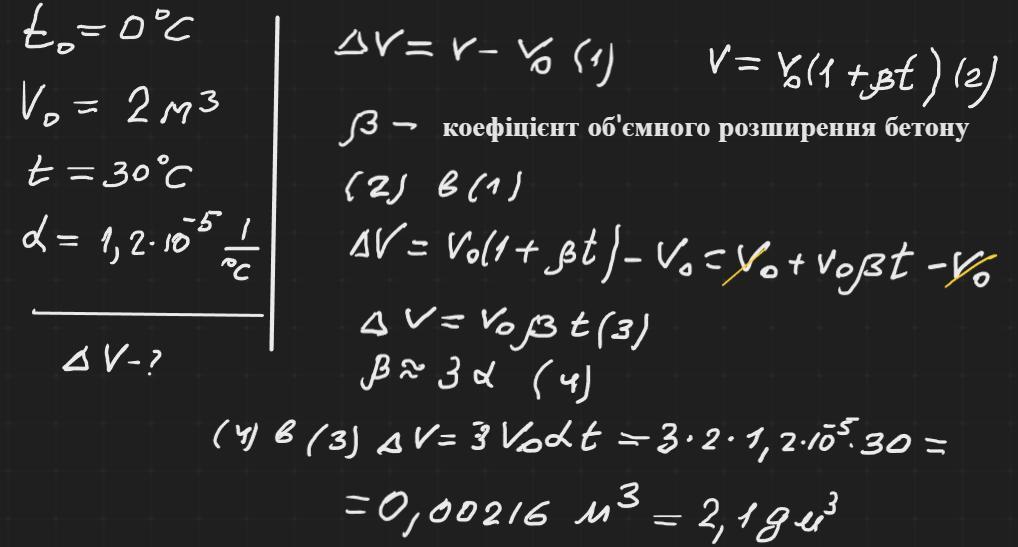 t₀ = 0°C
V₀ = 2 м³
t = 30°C
α = 1,2·10⁻⁵ 1/°C
ΔV - ?
ΔV = V - V₀ (1)
V = V₀(1 + βt) (2)
β - коефіцієнт об'ємного розширення бетону
(2) в (1)
ΔV = V₀(1 + βt) - V₀ = V₀ + V₀βt - V₀
ΔV = V₀βt (3)
β ≈ 3α (4)
(4) в (3) ΔV = 3V₀αt = 3·2·1,2·10⁻⁵·30 =
= 0,00216 м³ = 2,1 дм³